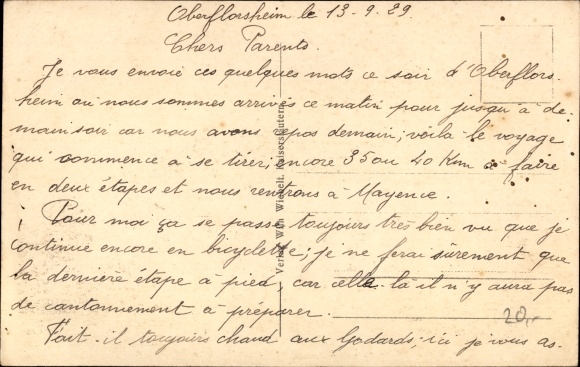 Oberflorsheim le 13-9.29
Chers Parents.
Je vous envoie ces quelques mots ce soir d'Oberflors-
heim où nous sommes arrivés ce matin pour jusqu'à de-
main soir car nous avons pas demain; voila le voyage
qui commence à se tirer; encore 35 ou 40 Km à faire
en deux étapes et nous rentrons à Mayence.
Pour moi ça se passe toujours très bien vu que je
continue encore en bicyclette; je ne ferai sûrement que
la dernière étape à pied, car celle là il n'y aura pas
de cantonnement à préparer.
20,-
Fait-il toujours chaud aux Godards; ici je vous as-
Verlag Wilh. Kaiserslautern.